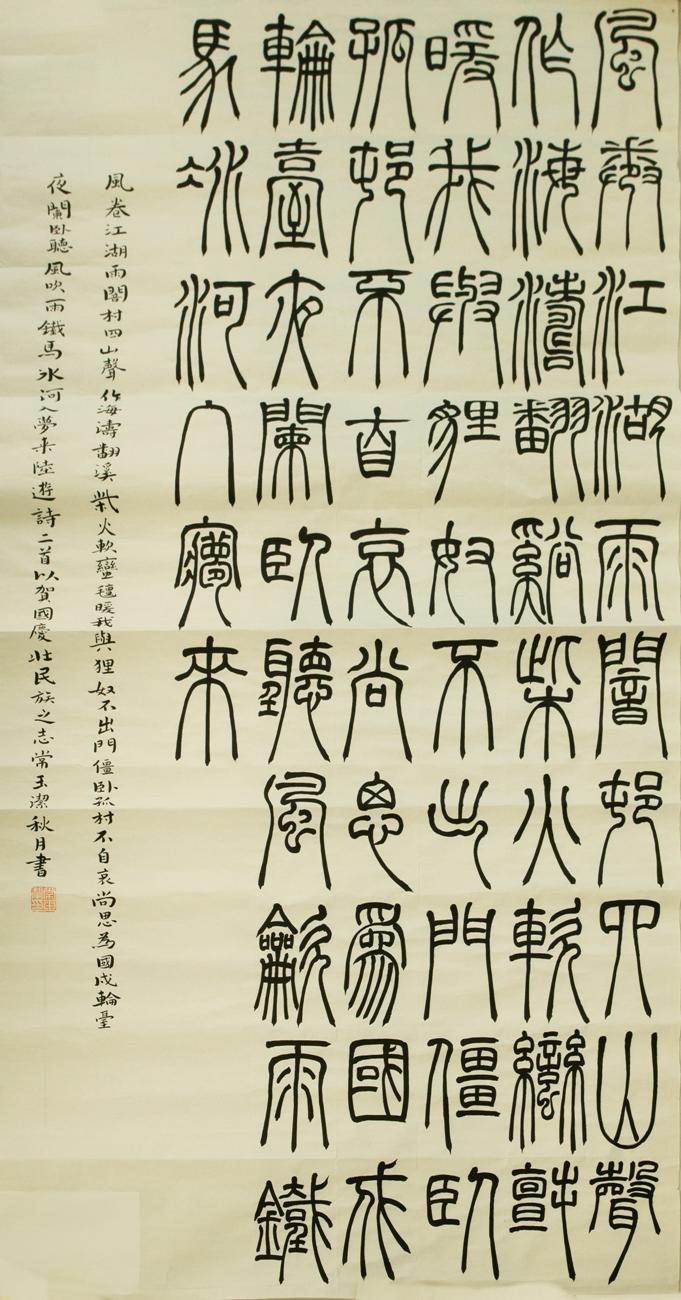 風卷江湖雨闇邨四山聲
作海濤翻谿柴火軟蠻氈
暖我與貍奴不出門僵臥
孤邨不自哀尚思為國戍
輪臺夜闌臥聽風龡雨鐵
馬冰河入夢來
風卷江湖雨闇村四山聲作海濤翻溪柴火軟蠻氊暖我與狸奴不出門僵卧孤村不自哀尚思為國戍輪臺
夜闌卧聽風吹雨鐵馬冰河入夢来陸遊詩二首以賀國慶壯民族之志常玉潔秋月書